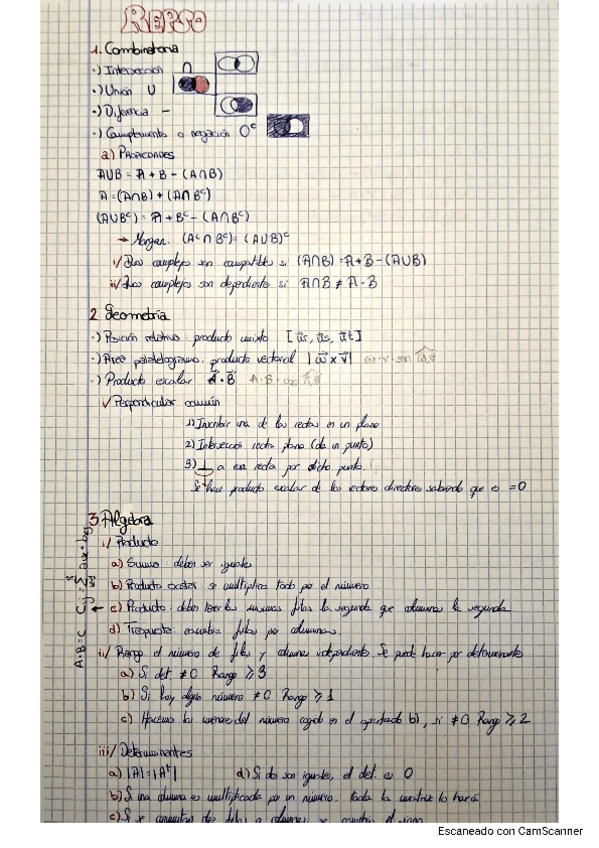 REPASO
1. Combinatoria
·) Intersección ∩
·) Unión U
·) Diferencia −
·) Complemento o negación Oᶜ
a) PROPIEDADES
AUB = A + B - (A∩B)
A = (A∩B) + (A∩Bᶜ)
(AUBᶜ) = A + Bᶜ - (A∩Bᶜ)
→ Morgan. (Aᶜ∩Bᶜ) = (AUB)ᶜ
i/ Dos complejos son compatibles si (A∩B) = A + B - (AUB)
ii/ Dos complejos son dependientes si A∩B ≠ A·B
2. Geometría
·) Posición relativa: producto mixto
·) Área paralelogramo: producto vectorial |w⃗ x v⃗|
·) Producto escalar A⃗·B⃗
i/ Perpendicular común
1) Inscribir una de las rectas en un plano
2) Intersección recta plano (da un punto)
3) ⊥ a esa recta por dicho punto.
Se hace producto escalar de los vectores directores sabiendo que es =0
3. Algebra
i/ Producto
a) Suma: deben ser iguales
b) Producto escalar: se multiplica todo por el número
A·B=C
c) Producto: deben tener las mismas filas la segunda que columnas la segunda
d) Traspuesta: cambia filas por columnas.
ii/ Rango el número de filas y columna independiente. Se puede hacer por determinante
a) Si det ≠ 0 Rango ≥ 3
b) Si hay algún número ≠ 0 Rango ≥ 1
c) Hacemos los menores del número cogido en el apartado b), si ≠ 0 Rango ≥ 2
iii/ Determinantes
a) |A| = |Aᵗ| d) Si dos son iguales, el det. es 0
b) Si una columna es multiplicada por un número, toda la matriz lo hará
c) Si se
Escaneado con CamScanner